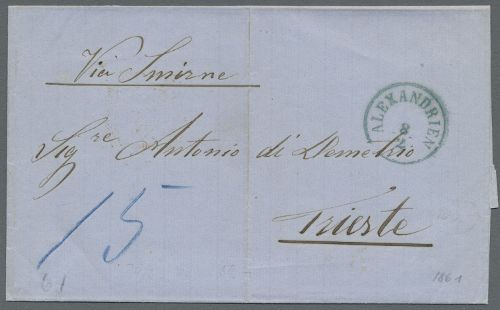 Via Smirne
ALEXANDRIEN
8
Sig.re Antonio di Demetrio
Trieste
15
61
1861